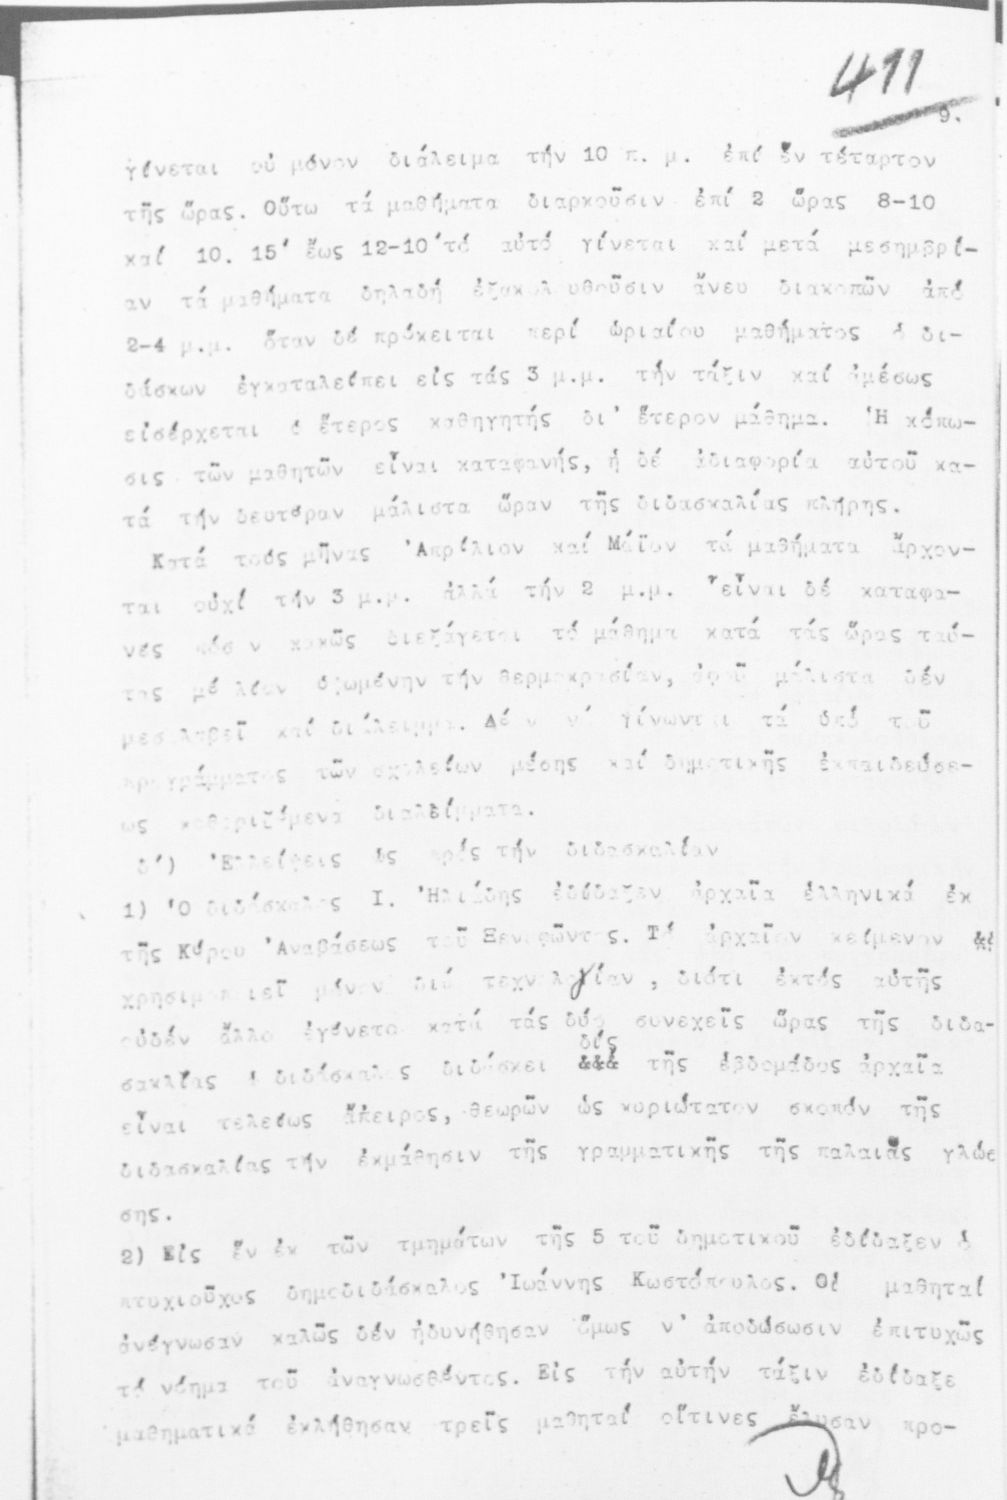 411
9.
γίνεται οὐ μόνον διάλειμα τήν 10 π. μ. ἐπί ἕν τέταρτον
τῆς ὥρας. Οὕτω τά μαθήματα διαρκοῦσιν ἐπί 2 ὥρας 8-10
καί 10. 15' ἕως 12-10 'τό αὐτό γίνεται καί μετά μεσημβρί-
αν τά μαθήματα δηλαδή ἐξακολουθοῦσιν ἄνευ διακοπῶν ἀπό
2-4 μ.μ. ὅταν δέ πρόκειται περί ὡριαίου μαθήματος ὁ δι-
δάσκων ἐγκαταλείπει εἰς τάς 3 μ.μ. τήν τάξιν καί ἀμέσως
εἰσέρχεται ὁ ἕτερος καθηγητής δι' ἕτερον μάθημα. Ἡ κόπω-
σις τῶν μαθητῶν εἶναι καταφανής, ἡ δέ ἀδιαφορία αὐτοῦ κα-
τά τήν δευτέραν μάλιστα ὥραν τῆς διδασκαλίας πλήρης.
Κατά τούς μῆνας Ἀπρίλιον καί Μάϊον τά μαθήματα ἄρχον-
ται οὐχί τήν 3 μ.μ. ἀλλά τήν 2 μ.μ. εἶναι δέ καταφα-
νές πόσον κακῶς διεξάγεται τό μάθημα κατά τάς ὥρας ταύ-
τας μέ λίαν τήν θερμοκρασίαν, ἀφοῦ μάλιστα δέν
μεσολαβεῖ καί διάλειμμα. Δέον νά γίνωνται τά ὑπό τοῦ
προγράμματος τῶν σχολείων μέσης καί δημοτικῆς ἐκπαιδεύσε-
ως καθοριζόμενα διαλείμματα.
δ') Ἐλλείψεις ὡς πρός τήν διδασκαλίαν
1) Ὁ διδάσκαλος Ι. Ἠλιάδης ἐδίδαξεν ἀρχαῖα ἑλληνικά ἐκ
τῆς Κύρου Ἀναβάσεως τοῦ Ξενοφῶντος. Τό ἀρχαῖον κείμενον
χρησιμοποιεῖ μόνον διά τεχνολογίαν, διότι ἐκτός αὐτῆς
οὐδέν ἄλλο ἐγένετο κατά τάς δύο συνεχεῖς ὥρας τῆς διδα-
σακλίας ὁ διδάσκαλος διδάσκει δίς τῆς ἑβδομάδος ἀρχαῖα
εἶναι τελείως ἄπειρος, θεωρῶν ὡς κυριώτατον σκοπόν τῆς
διδασκαλίας τήν ἐκμάθησιν τῆς γραμματικῆς τῆς παλαιᾶς γλώσ
σης.
2) Εἰς ἕν ἐκ τῶν τμημάτων τῆς 5 τοῦ δημοτικοῦ ἐδίδαξεν ὁ
πτυχιοῦχος δημοδιδάσκαλος Ἰωάννης Κωστόπουλος. Οἱ μαθηταί
ἀνέγνωσαν καλῶς δέν ἠδυνήθησαν ὅμως ν' ἀποδώσωσιν ἐπιτυχῶς
τό νόημα τοῦ ἀναγνωσθέντος. Εἰς τήν αὐτήν τάξιν ἐδίδαξε
μαθηματικά ἐκλήθησαν τρεῖς μαθηταί οἵτινες ἔλυσαν προ-